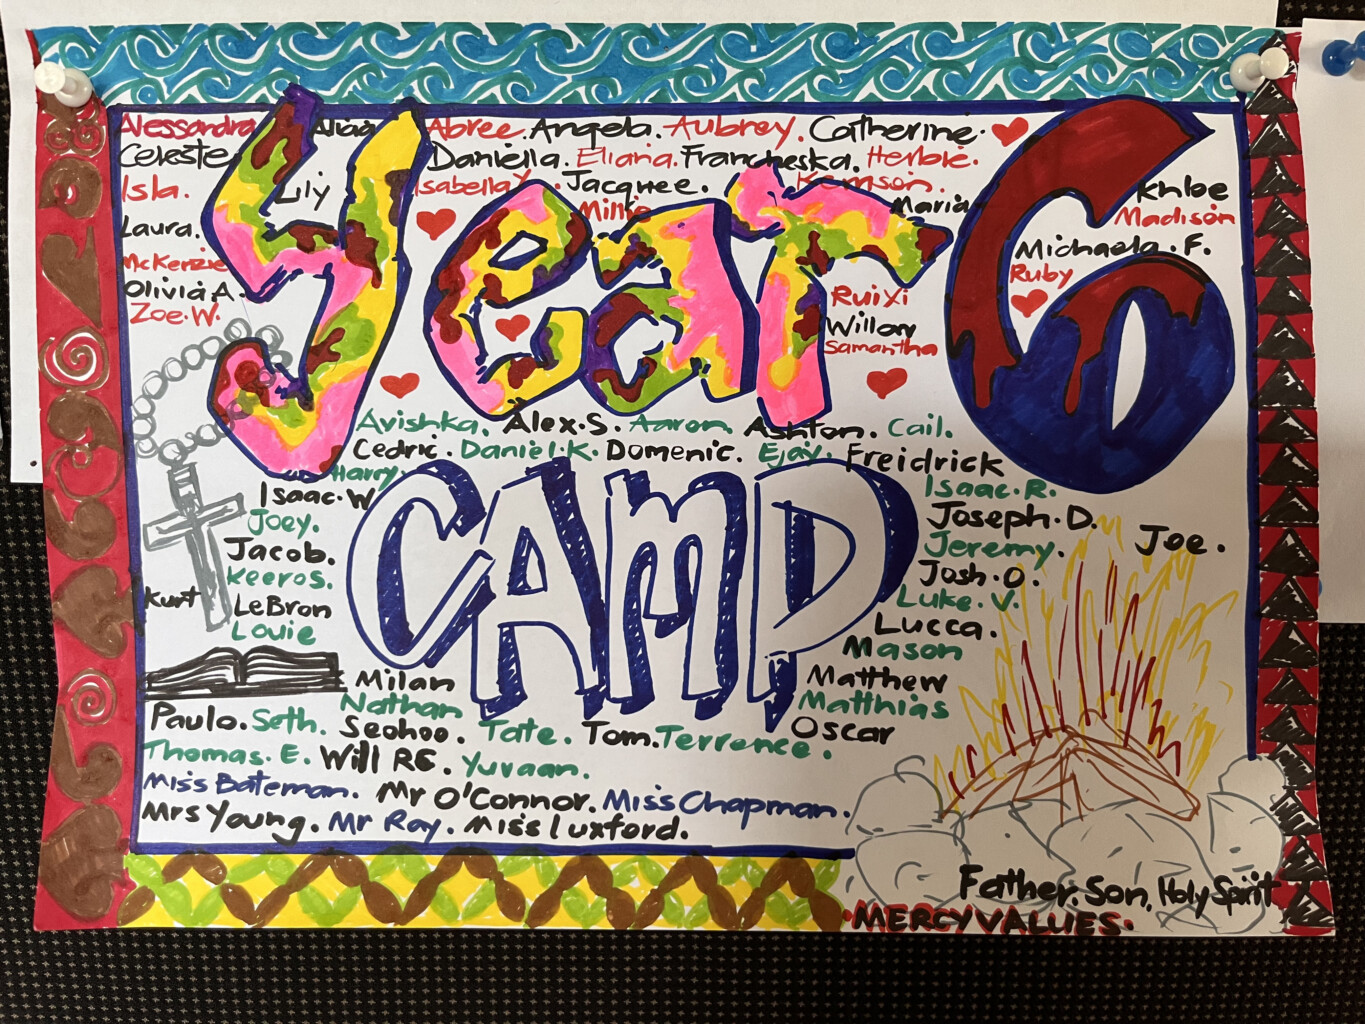 Alessandra Alicia Abree. Angela. Aubrey. Catherine.
Celeste Daniella. Eliana. Francheska. Herbie.
Isla. Lily Isabella Y. Jacquee. Kemson. Khloe
Laura. Millie Maria Madison
McKenzie Michaela. F.
Olivia A. Ruby
Zoe. W. Rui Xi
Willow
Samantha
Year 6
Avishka. Alex. S. Aaron. Ashton. Cail.
Cedric. Daniel. K. Domenic. Ejay. Freidrick
Harry. Isaac. R.
Isaac. W Joseph. D. Joe.
Joey. Jeremy.
Jacob. Josh. O.
Keeros. Luke. V.
Kurt LeBron Lucca.
Louie Mason
CAMP
Milan Matthew
Nathan Matthias
Paulo. Seth. Seohoo. Tate. Tom. Terrence. Oscar
Thomas. E. Will RE. Yuvaan.
Miss Bateman. Mr O'Connor. Miss Chapman.
Mrs Young. Mr Ray. Miss Luxford.
Father, Son, Holy Spirit
.MERCY VALUES.